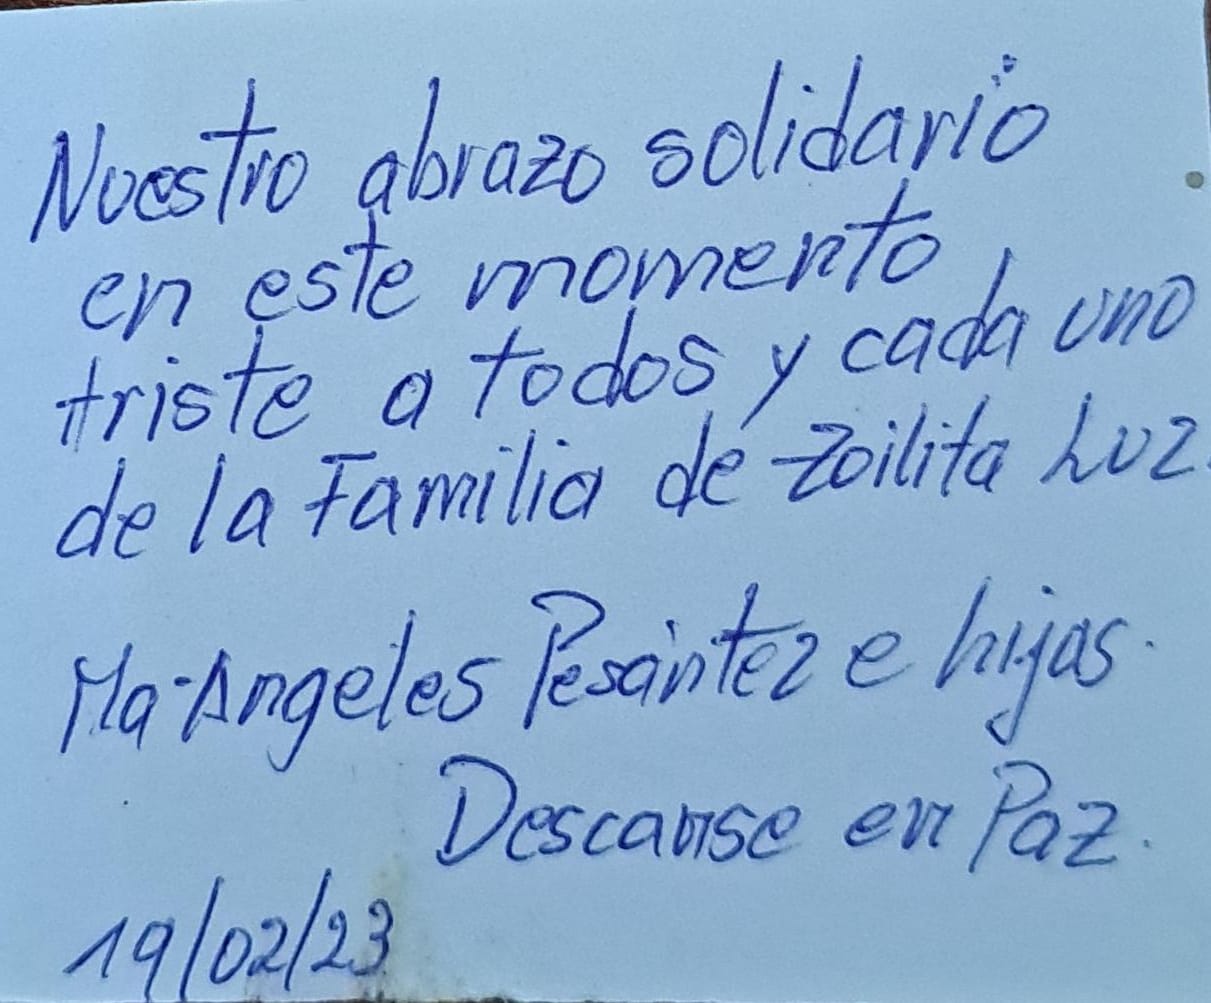 Nuestro abrazo solidario
en este momento
triste a todos y cada uno
de la Familia de Zoilita Luz.
Ma. Angeles Pesántez e hijas.
Descanse en Paz.
19/02/23